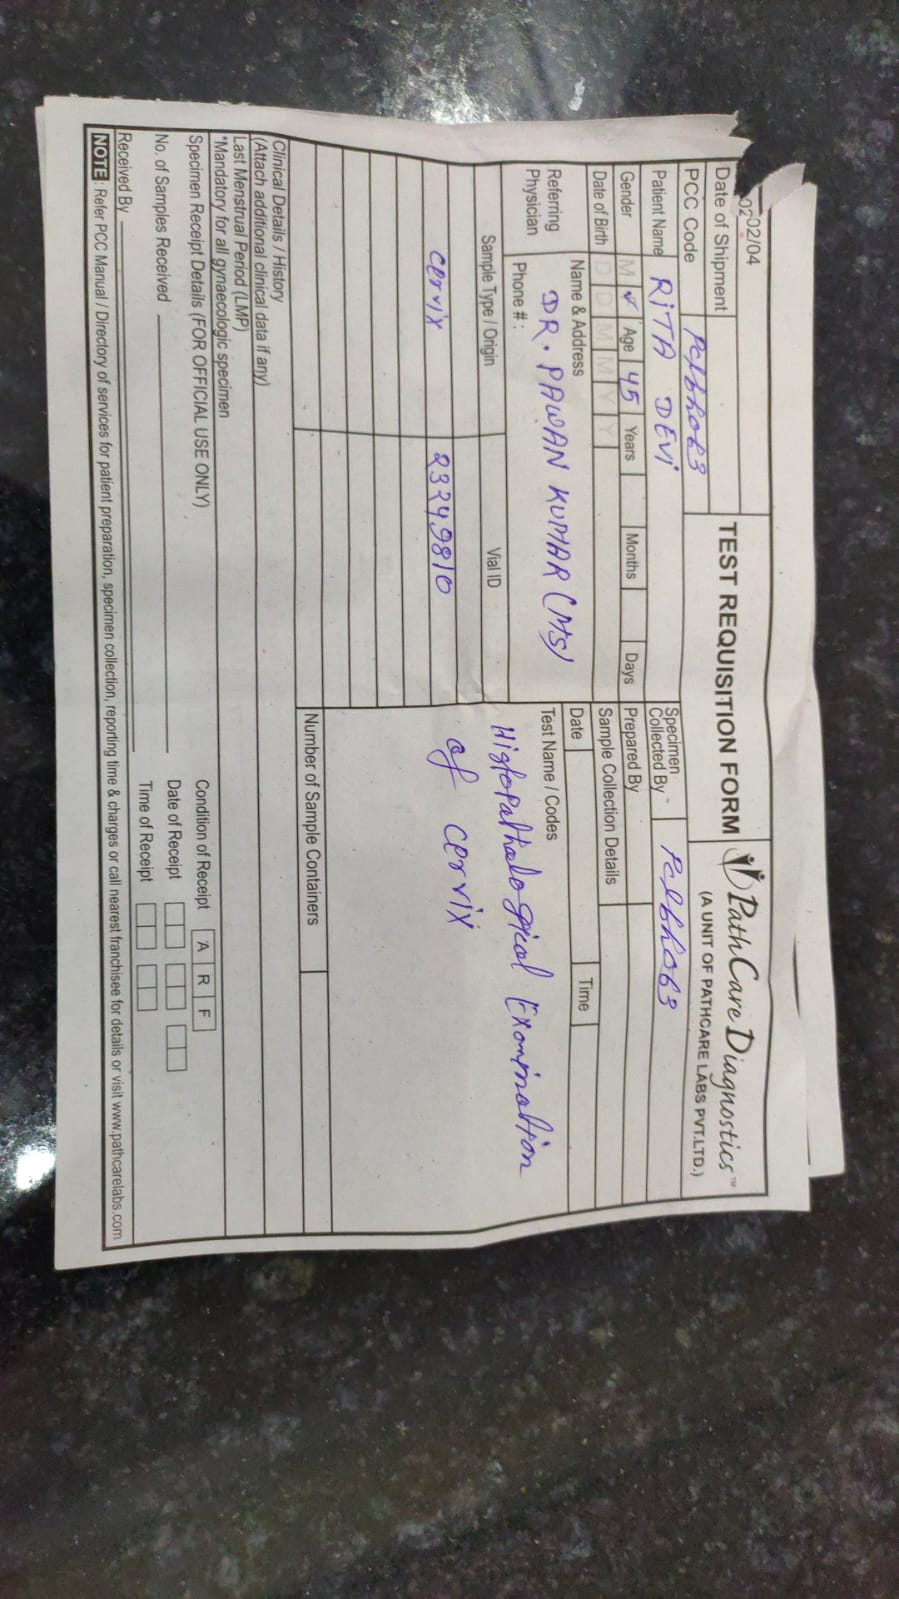 02/04
02
TEST REQUISITION FORM
PathCare Diagnostics™
(A UNIT OF PATHCARE LABS PVT.LTD.)
Date of Shipment
PCC Code Pclbh063
Specimen Collected By - Pclbh063
Patient Name RiTA DEVi
Prepared By
Gender M ✓ Age 45 Years Months Days
Sample Collection Details
Date of Birth D D M M Y Y
Date Time
Referring Physician
Name & Address
DR. PAWAN KUMAR (MS)
Phone # :
Test Name / Codes
Histopathological Examination
of cervix
Sample Type / Origin Vial ID
cervix 23249810
Number of Sample Containers
Clinical Details / History
(Attach additional clinical data if any)
Last Menstrual Period (LMP)
*Mandatory for all gynaecologic specimen
Specimen Receipt Details (FOR OFFICIAL USE ONLY)
Condition of Receipt A R F
No. of Samples Received
Date of Receipt
Received By
Time of Receipt
NOTE : Refer PCC Manual / Directory of services for patient preparation, specimen collection, reporting time & charges or call nearest franchisee for details or visit www.pathcarelabs.com